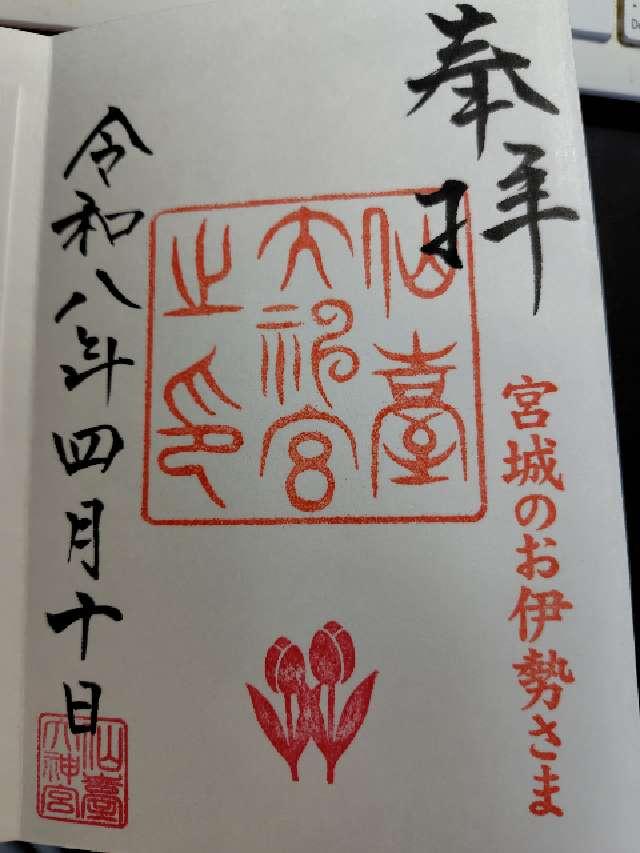 奉拝
宮城のお伊勢さま
仙臺
大神宮
之印
令和八年四月十日
仙臺
大神宮